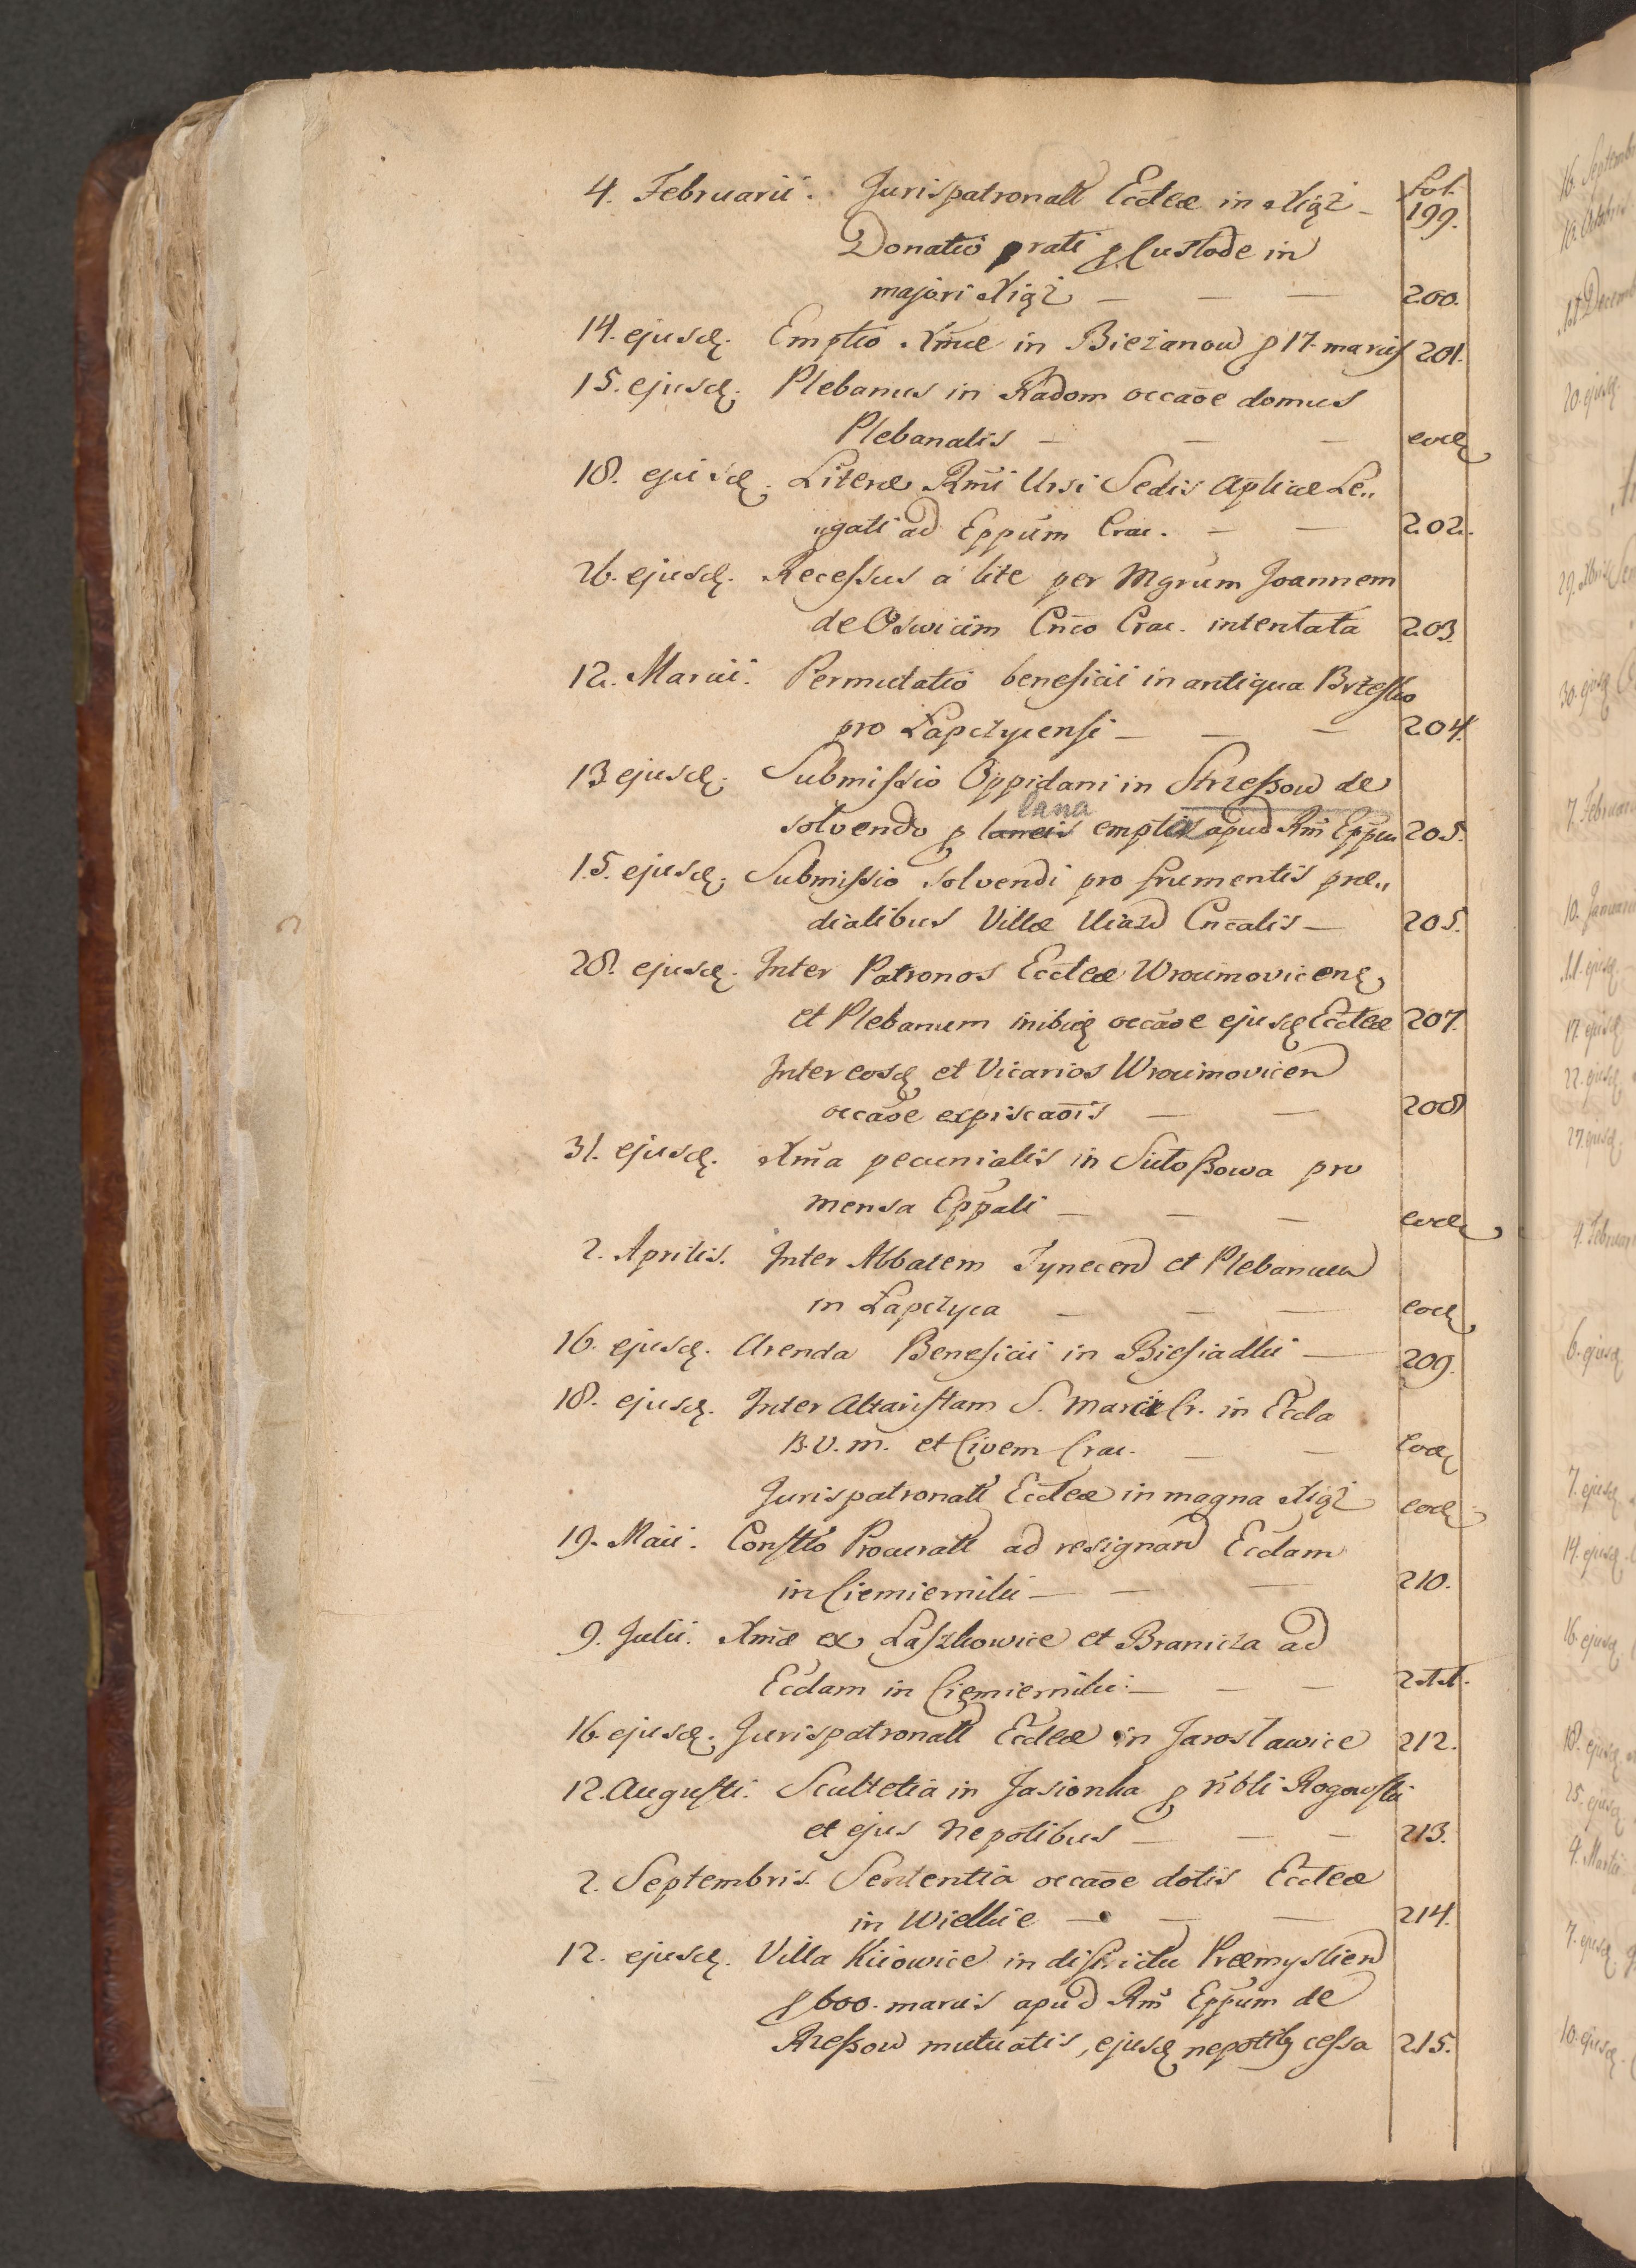 Fol.
4. Februarii. Jurispatronatt Eccleæ in Xigż – 199.
Donatio prati p Custode in
majori Xigż – – – 200.
14. ejusd. Emptio Xmæ in Bieżanow p 17. marcis 201.
15. ejusd. Plebanus in Radom occaõe domus
Plebanalis – – – eod
18. ejusd. Literæ Rmi Ursi Sedis Aplicæ Le„
„gati ad Eppum Crac. – – 202.
26. ejusd. Recessus a lite per Mgrum Joannem
de Oswicim Cnco Crac. intentata 203.
12. Marcii. Permutatio beneficii in antiqua Brzesko
pro Łapczycensi – – – 204.
13 ejusd. Submissio Oppidani in Strzeszow de
lana
solvendo p laneis emptis apud Rm Eppum 205.
15. ejusd. Submissio solvendi pro frumentis præ„
dialibus Villæ Uiazd Cncalis – 205.
28. ejusd. Inter Patronos Eccleæ Wrocimovicens
et Plebanum inibid occaõe ejusd Eccleæ 207.
Inter eosd et Vicarios Wrocimovicen
occaõe expiscaõis – – 208
31. ejusd. Xma pecunialis in Sutoszowa pro
mensa Eppali – – – eod
2. Aprilis. Inter Abbatem Tynecen et Plebanum
in Łapczyca – – – eod
16. ejusd. Arenda Beneficii in Biesiadki – 209.
18. ejusd. Inter Altaristam S. Marci Cr. in Eccla
B.V.m. et Civem Crac. – – eod
Jurispatronatt Eccleæ in magna Xigż eod
19. Maii. Consttio Procuratt ad resignand Ecclam
in Ciemierniki – – – 210.
9. Julii. Xmæ ex Laszkowice et Branicza ad
Ecclam in Ciemierniki – – – 211.
16. ejusd. Jurispatronatt Eccleæ in Jarosławice 212.
12. Augusti. Scultetia in Jasionka p nbli Rogowski
et ejus nepotibus – – – 213.
2. Septembris. Sententia occaõe dotis Eccleæ
in Wielkie – – – 214.
12. ejusd. Villa Kiiowice in districtu Præmyslien
p 600. marcis apud Rm Eppum de
Rzeszow mutuatis, ejusd nepotib cessa 215.